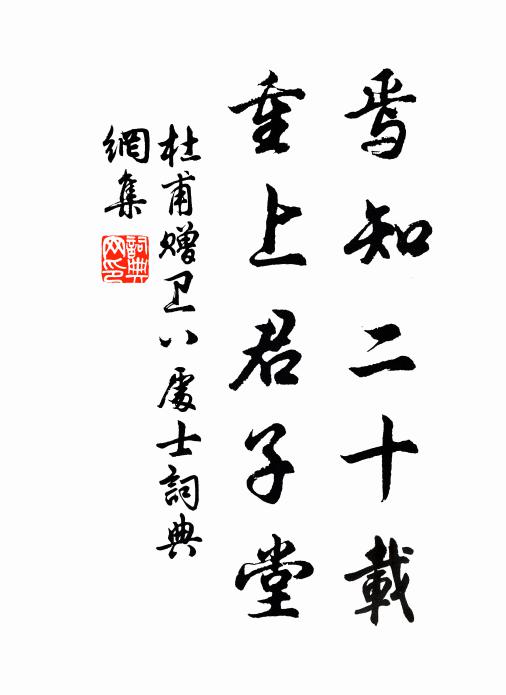 焉知二十載
重上君子堂
杜甫贈卫八處士詞典
網集
詞典網印